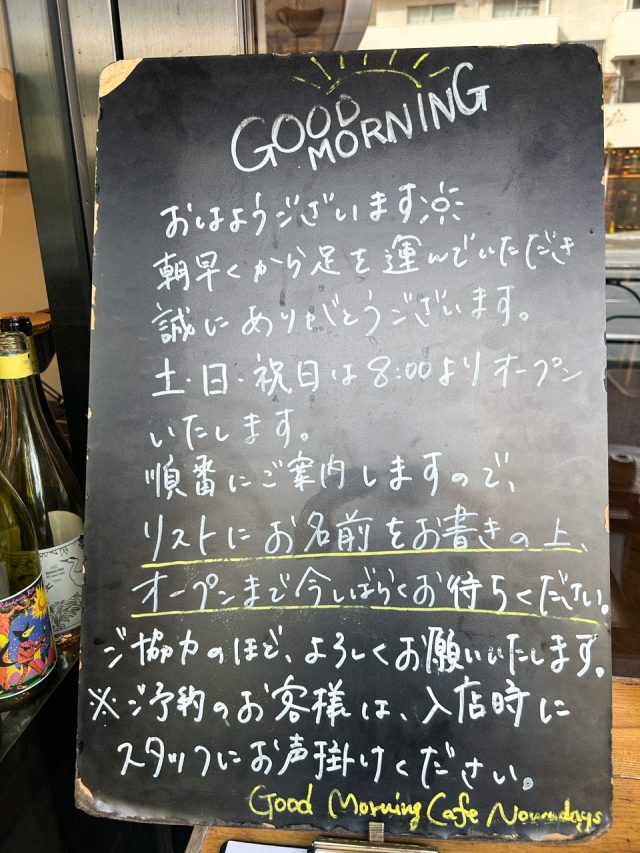 GOOD
MORNING
おはようございます
朝早くから足を運んでいただき
誠にありがとうございます。
土・日・祝日は8:00よりオープン
いたします。
順番にご案内しますので、
リストにお名前をお書きの上、
オープンまで今しばらくお待ちください。
ご協力のほど、よろしくお願いいたします。
※ご予約のお客様は、入店時に
スタッフにお声掛けください。
Good Morning Cafe Nowadays